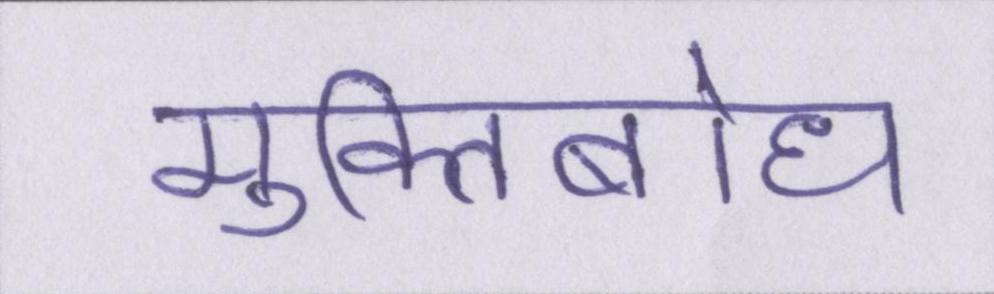 मुक्तिबोध